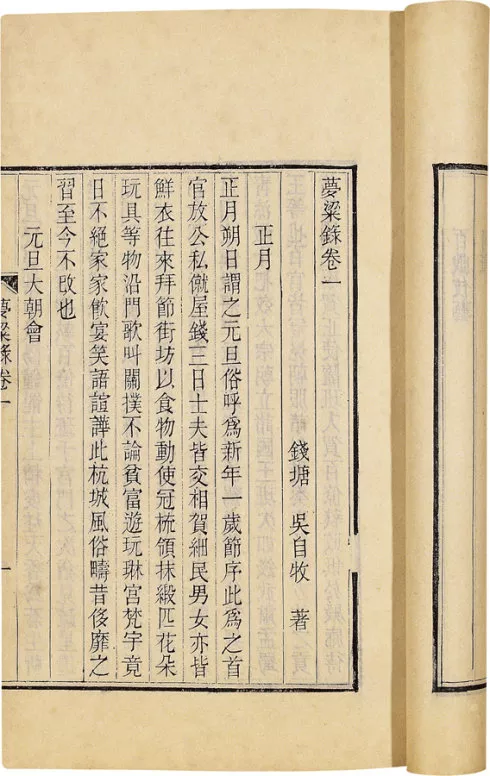 夢粱錄卷一
錢塘 吳自牧 著
正月
正月朔日謂之元旦俗呼爲新年一歲節序此爲之首
官放公私僦屋錢三日士夫皆交相賀細民男女亦皆
鮮衣往來拜節街坊以食物動使冠梳領抹緞匹花朵
玩具等物沿門歌叫關撲不論貧富遊玩琳宮梵宇竟
日不絕家家飮宴笑語諠譁此杭城風俗疇昔侈靡之
習至今不改也
元旦大朝會
夢粱錄卷一
一